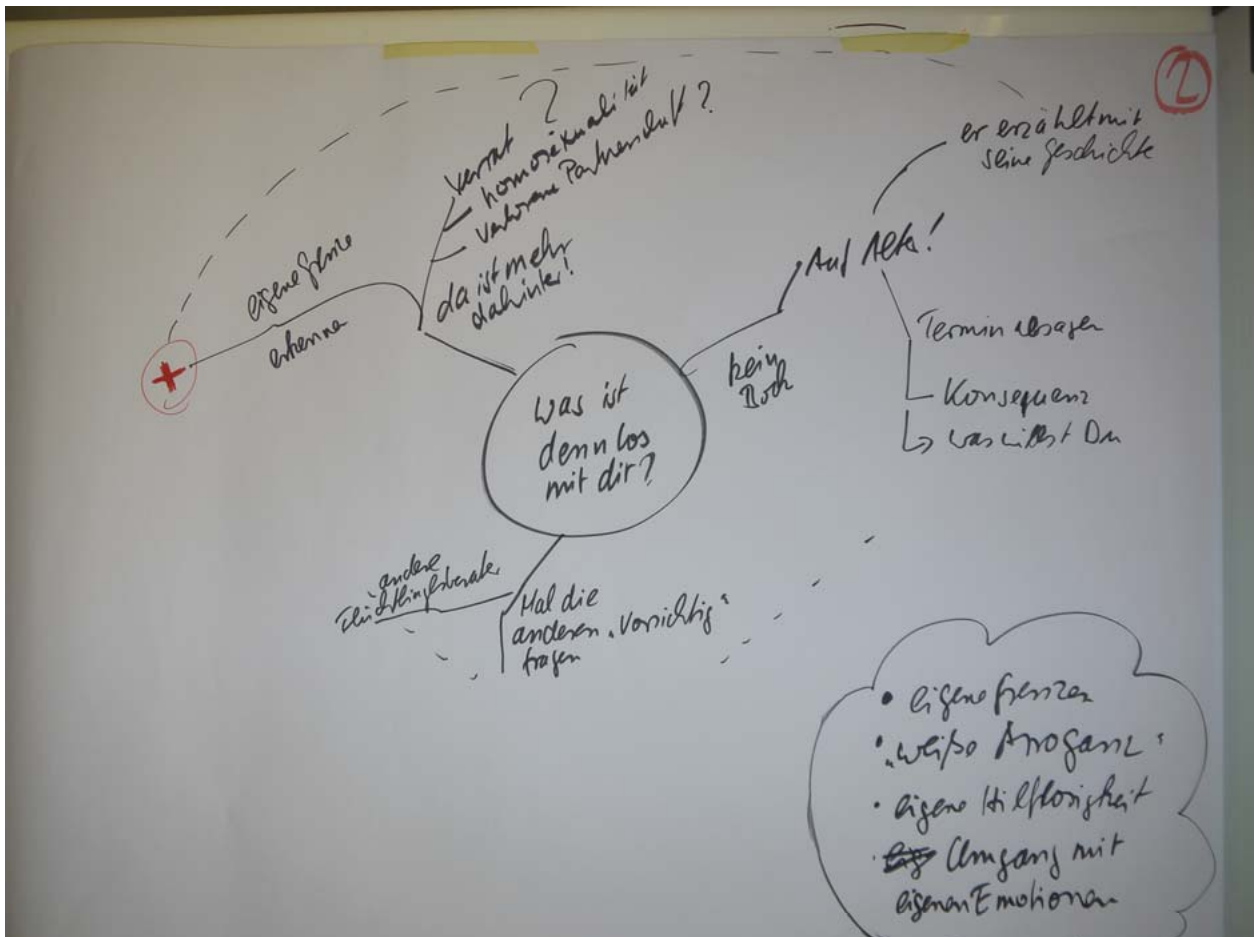 2
?
Verrat
homosexualität
verlorene Partnerschaft?
da ist mehr
dahinter!
eigene Grenze
erkennen
+
er erzählt mir
seine Geschichte
Auf Alter!
kein
Bock
Termin absagen
Konsequenz
was willst Du
Was ist
denn los
mit dir?
andere
Flüchtlingsberater
Mal die
anderen „vorsichtig“
fragen
• eigene Grenzen
• „weiße Arroganz“
• eigene Hilflosigkeit
• Umgang mit
eigenen Emotionen